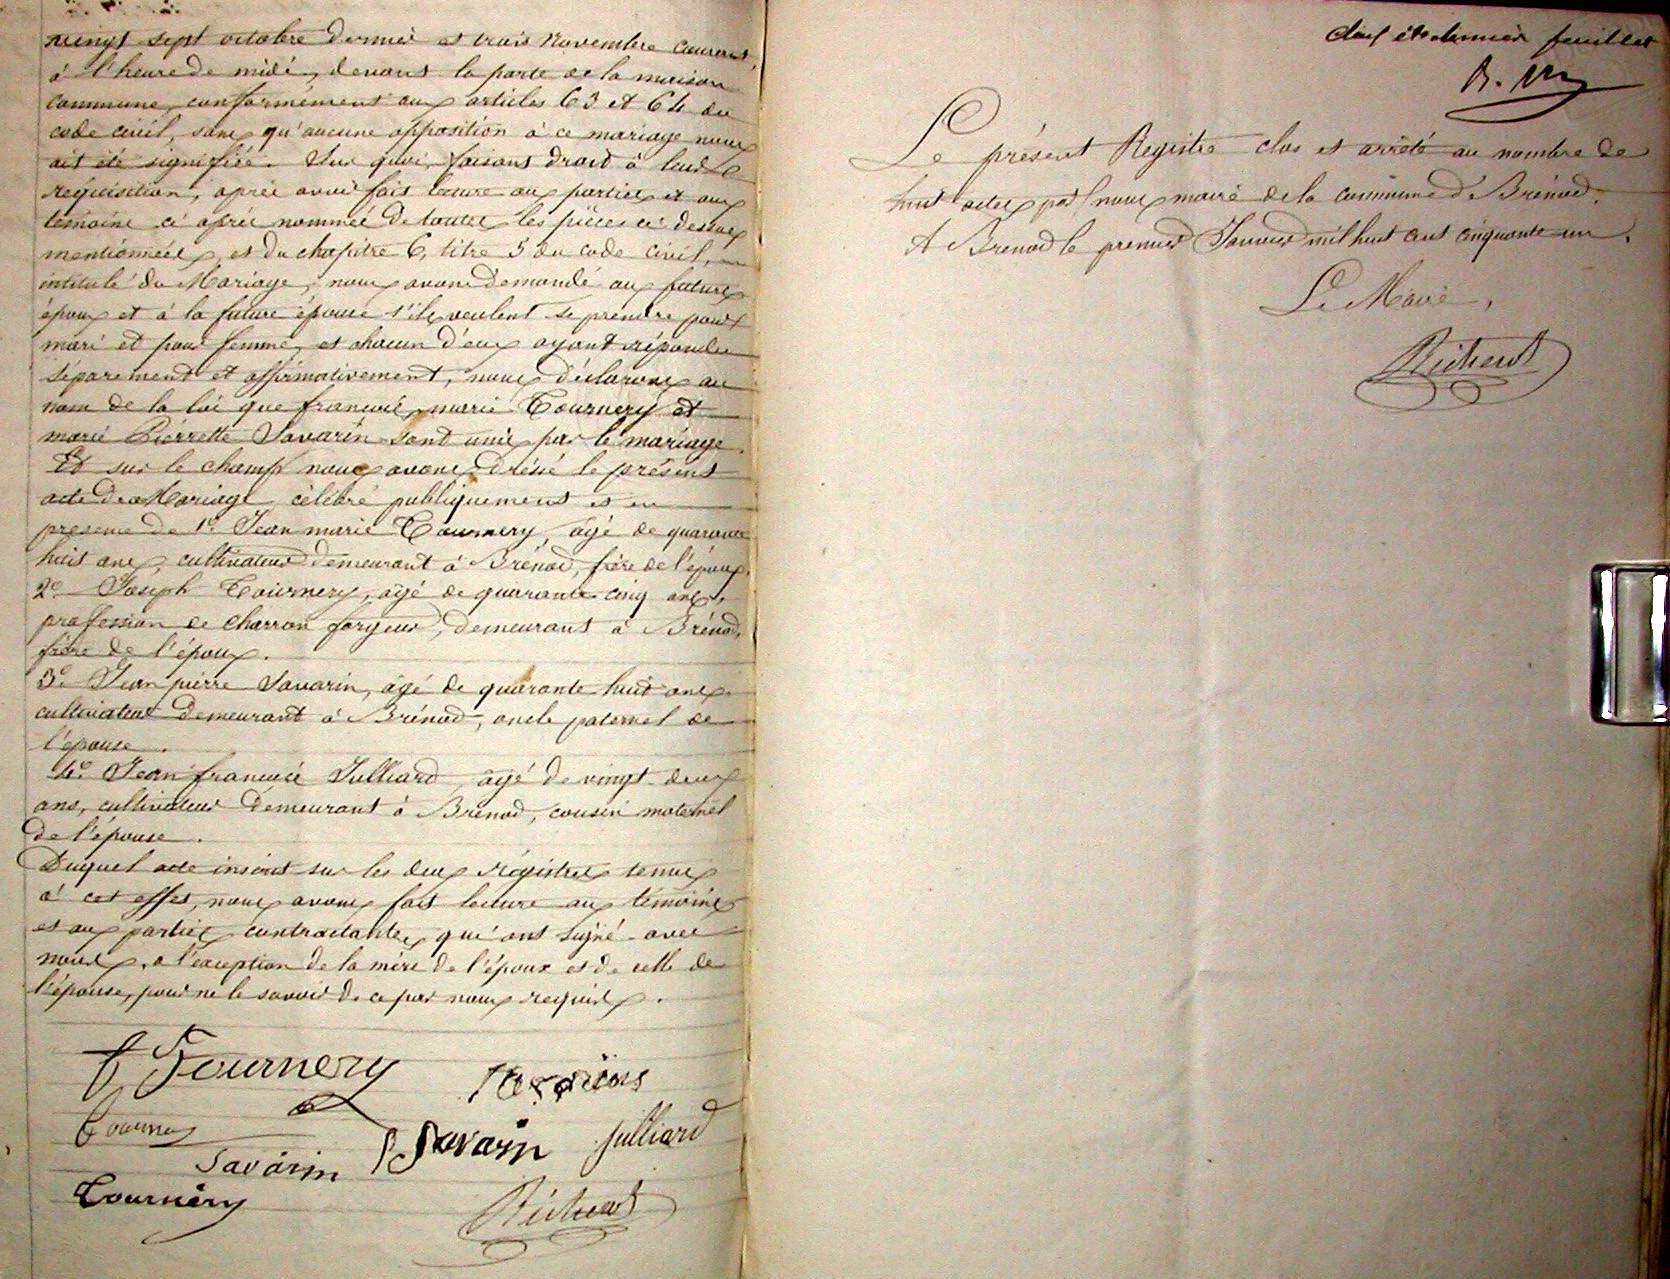 vingt sept octobre dernier et trois Novembre Courant,
à l'heure de midi, devant la porte de la maison
commune, conformément aux articles 63 et 64 du
code civil, sans qu'aucune opposition à ce mariage nous
ait été signifiée. Sur quoi, faisant droit à leur
réquisition, après avoir fait lecture aux parties et aux
témoins ci après nommés de toutes les pièces ci dessus
mentionnées, et du chapitre 6, titre 5 du code civil,
intitulé du Mariage, nous avons demandé aux futurs
époux et à la future épouse s'ils veulent se prendre pour
mari et pour femme, et chacun d'eux ayant répondu
séparement et affirmativement, nous déclarons au
nom de la loi que françois marie Tournery et
marie Pierrette Savarin sont unis par le mariage.
Et sur le champ nous avons dréssé le présent
acte de Mariage célébré publiquement et en
présence de 1.° Jean marie Tournery, âgé de quarante
huit ans, cultivateur demeurant à Brénod, frère de l'époux.
2.° Joseph Tournery, âgé de quarante cinq ans,
profession de charron forgeur, demeurant à Brénod,
frère de l'époux.
3.° Jean pierre Savarin, âgé de quarante huit ans.
cultivateur demeurant à Brénod, oncle paternel de
l'épouse.
4.° Jean françois Julliard, âgé de vingt deux
ans, cultivateur demeurant à Brénod, cousin maternel
de l'épouse.
Duquel acte inscrit sur les deux régistres tenus
à cet effet, nous avons fait lecture aux témoins
et aux parties contractantes, qui ont signé avec
nous, à l'exception de la mère de l'époux et de celle de
l'épouse, pour ne le savoir de ce par nous requis.
f Tournery
Tourne
Savarin P Savarin Julliard
Tournéry Richerot
dernier feuillet
Le présent Registre clos et arrêté au nombre de
huit actes par nous maire de la commune d'Brénod.
A Brenod le premier Janvier mil huit cent cinquante un.
Le Maire,
Richerot